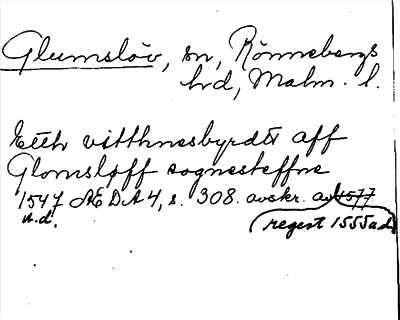 Glumslöv, sn, Rönnebergs
hd, Malm. l.
Etth vitthnesbyrdtt aff
Glomsløff sognesteffne
1547 ÆDA4, s. 308. avskr. av 1577
n.d. regest 1555 a.d.